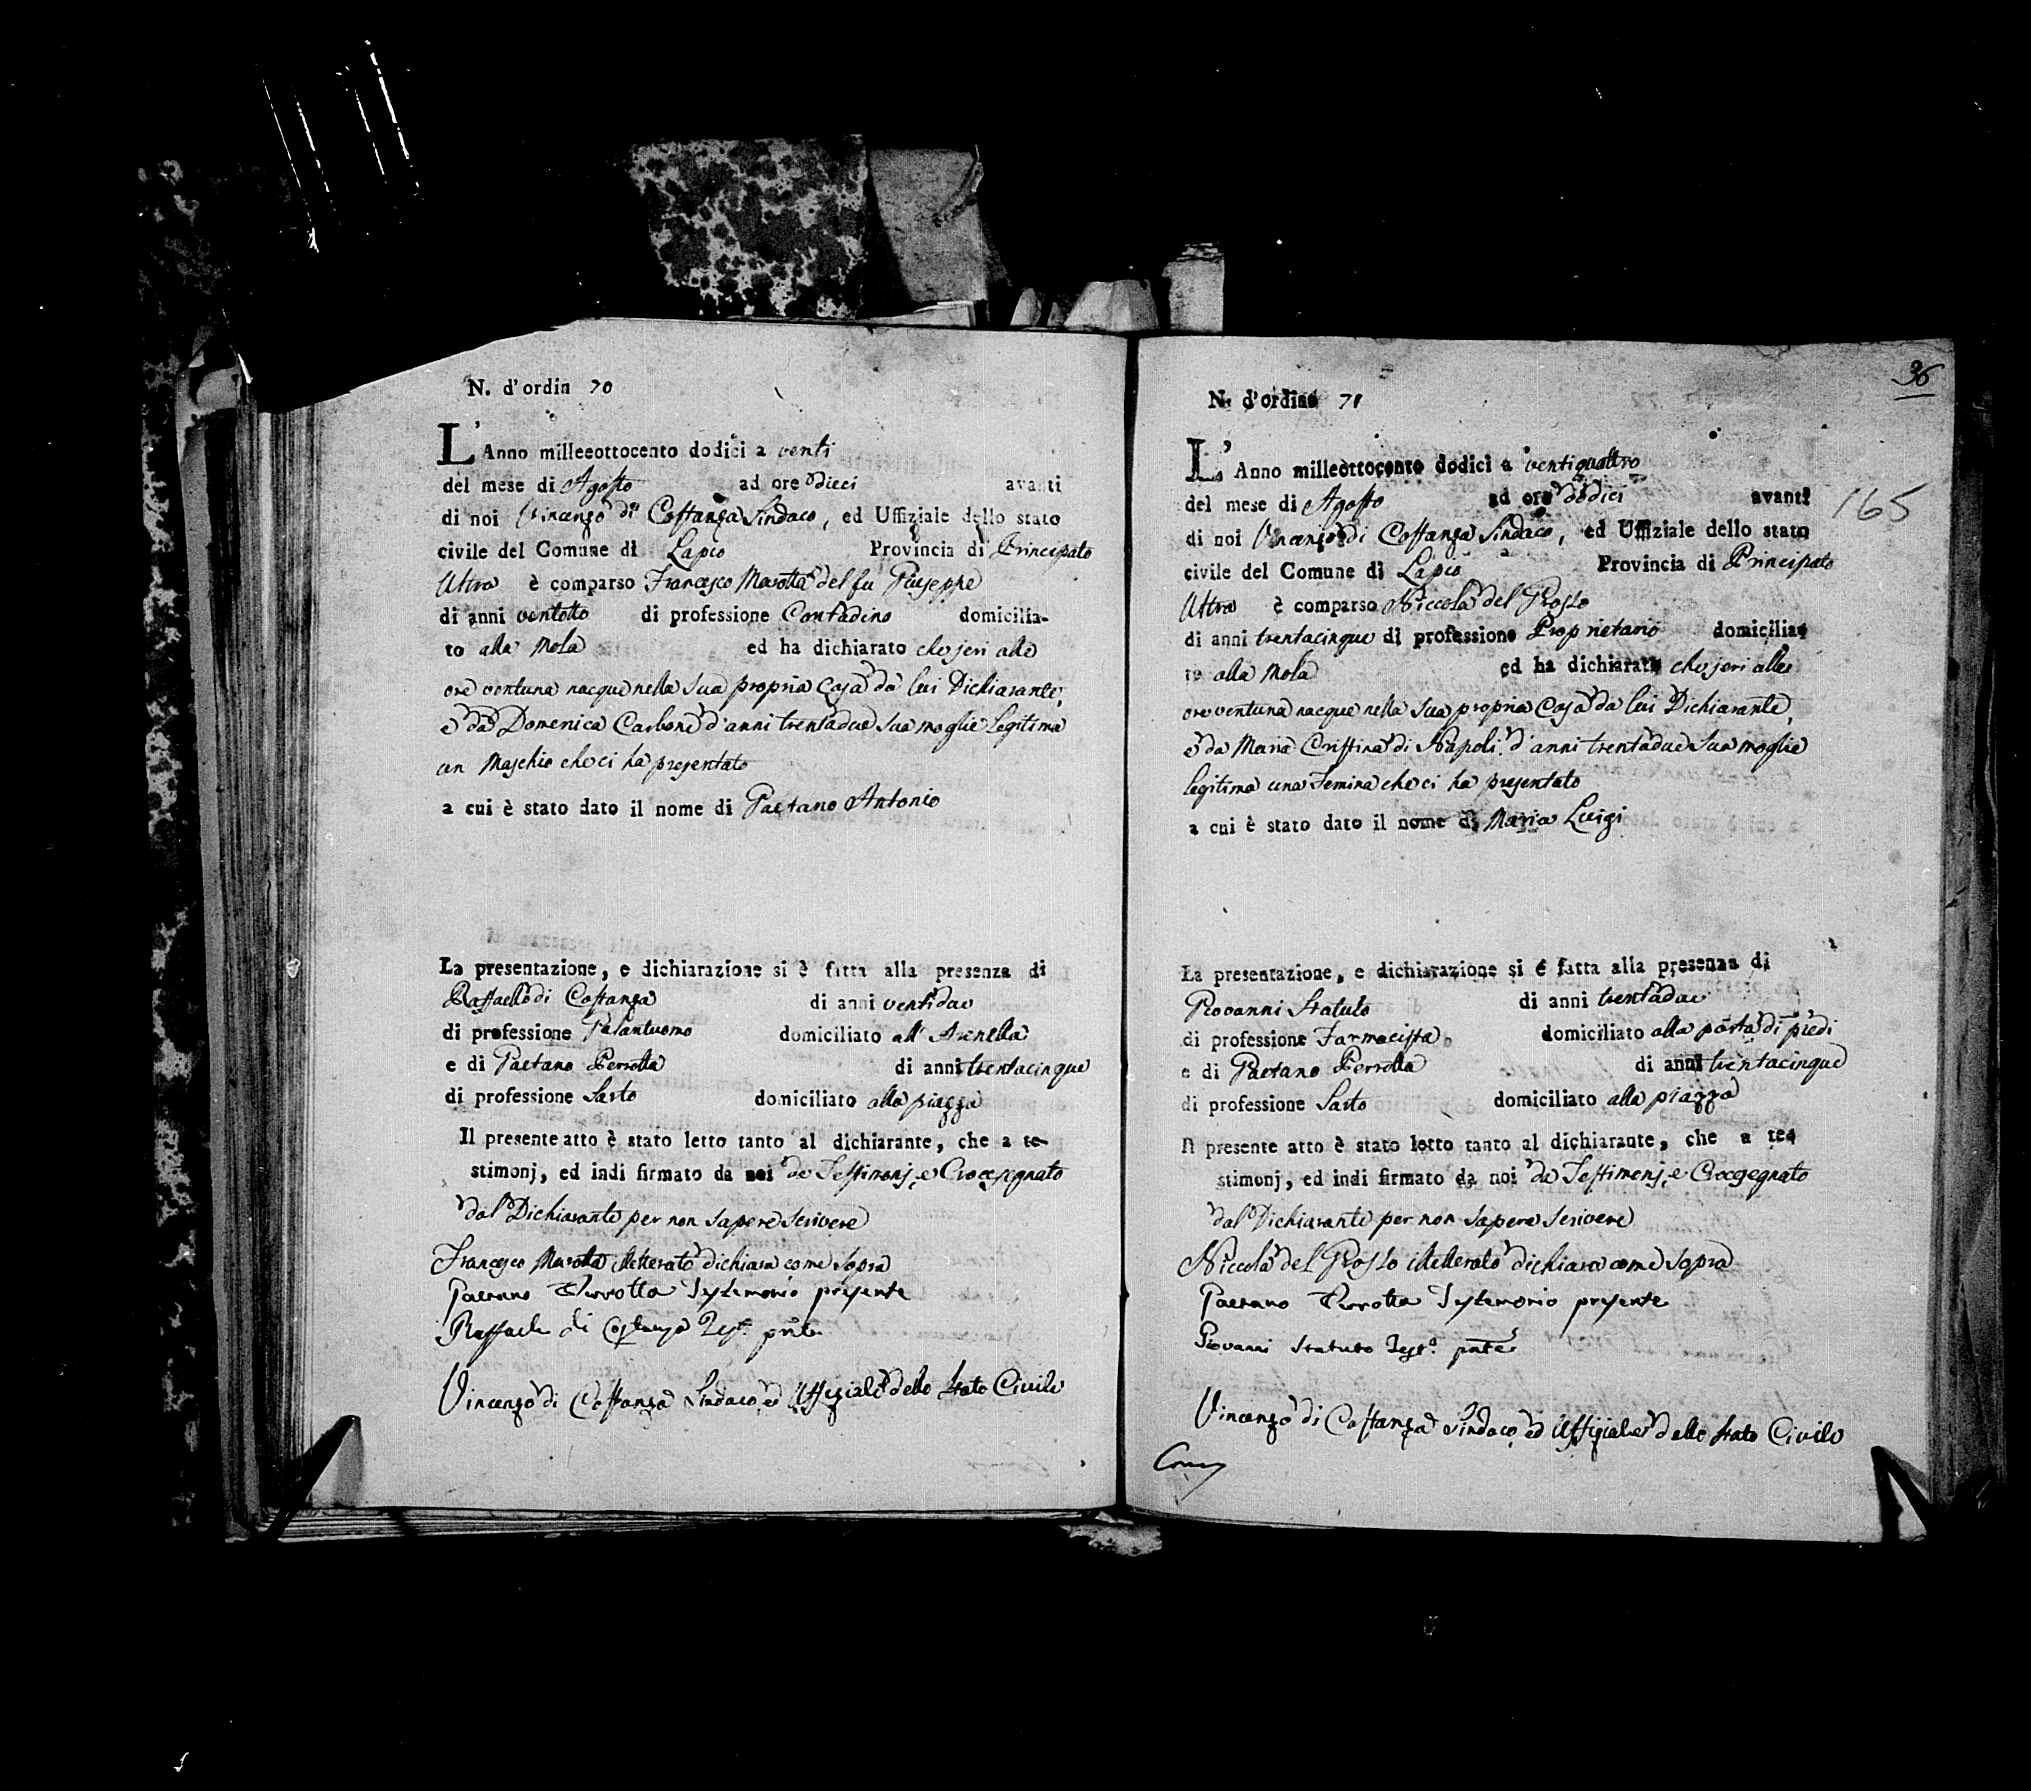 N. d'ordin 70
L'Anno milleeottocento dodici a venti
del mese di Agosto ad ore dieci avanti
di noi Vincenzo di Costanza Sindaco, ed Uffiziale dello stato
civile del Comune di Lapio Provincia di Principato
Ultra è comparso Francesco Marotta del fu Giuseppe
di anni ventotto di professione Contadino domicilia-
to alla Mola ed ha dichiarato che jeri alle
ore ventuna nacque nella sua propria Casa da lui Dichiarante,
e da Domenica Carbone d'anni trentadue sua moglie legitima
un Maschio che ci ha presentato
a cui è stato dato il nome di Gaetano Antonio
La presentazione, e dichiarazione si è fatta alla presenza di
Raffaele di Costanza di anni ventidue
di professione Galantuomo domiciliato all'Arenella
e di Gaetano Perrotta di anni trentacinque
di professione Sarto domiciliato alla piazza
Il presente atto è stato letto tanto al dichiarante, che a te-
stimonj, ed indi firmato da noi da Testimonj, e Crocesegnato
dal Dichiarante per non sapere scrivere
Francesco Marotta illetterato dichiara come sopra
Gaetano Perrotta Testemonio presente
Raffaele di Costanza Test. pnte
Vincenzo di Costanza Sindaco ed Uffiziale dello Stato Civile
36
N. d'ordine 71
L'Anno milleottocento dodici a ventiquattro
del mese di Agosto ad ore dodici avanti
165
di noi Vincenzo di Costanza Sindaco, ed Uffiziale dello stato
civile del Comune di Lapio Provincia di Principato
Ultra è comparso Niccola del Grosso
di anni trentacinque di professione Proprietario domicilia-
to alla Mola ed ha dichiarato che jeri alle
ore ventuna nacque nella sua propria Casa da lui Dichiarante,
e da Maria di Napoli d'anni trentadue sua moglie
legitima una Femina che ci ha presentato
a cui è stato dato il nome di Maria Luigi
La presentazione, e dichiarazione si è fatta alla presenza di
Giovanni Statuto di anni trentadue
di professione Farmacista domiciliato alla porta di piedi
e di Gaetano Perrotta di anni trentacinque
di professione Sarto domiciliato alla piazza
Il presente atto è stato letto tanto al dichiarante, che a te-
stimonj, ed indi firmato da noi da Testimonj, e Crocesegnato
dal Dichiarante per non sapere scrivere
Niccola del Grosso illetterato dichiara come sopra
Gaetano Perrotta Testemonio presente
Giovanni Statuto Test.o pnte
Vincenzo di Costanza Sindaco ed Uffiziale dello Stato Civile